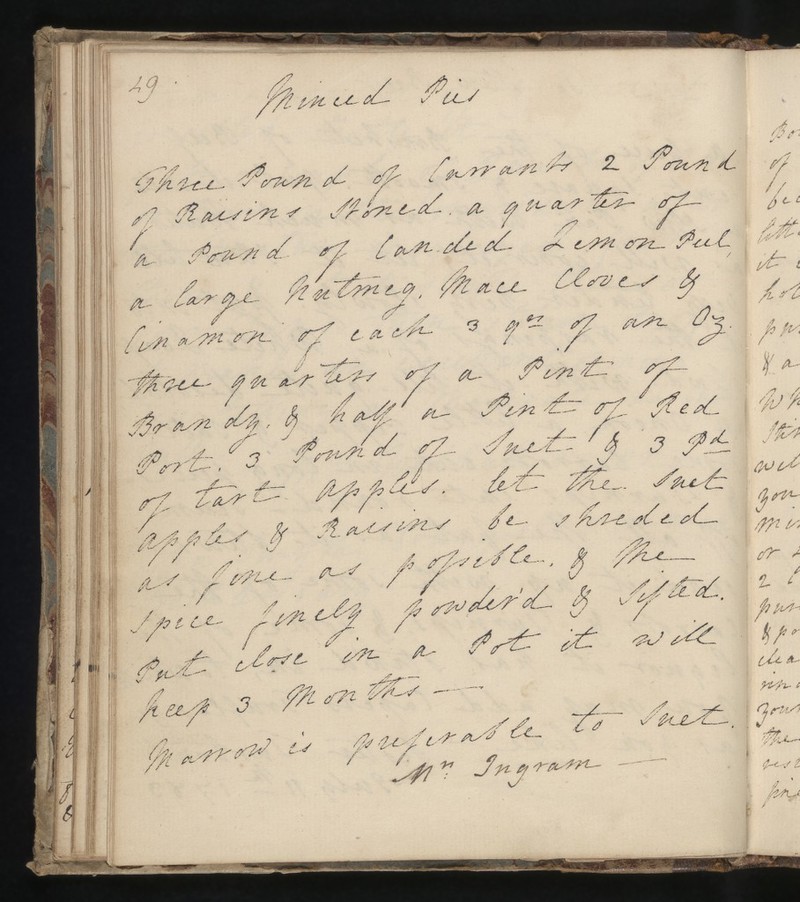 49.
Minced Pies
Three Pound of Currants 2 Pound
of Raisins Stoned. a quarter of
a Pound of Canded Lemon Peel,
a large Nutmeg. Mace Cloves &
Cinamon of each 3 qrs of an Oz.
three quarters of a Pint of
Brandy. & half a Pint of Red
Port. 3 Pound of Suet & 3 Pd
of tart apples. let the Suet
apples & Raisins be shreded
as fine as possible. & the
Spice finely powder'd & Sifted.
Put close in a Pot it will
keep 3 Months —
Marrow is preferable to Suet.
Mrs Ingram —